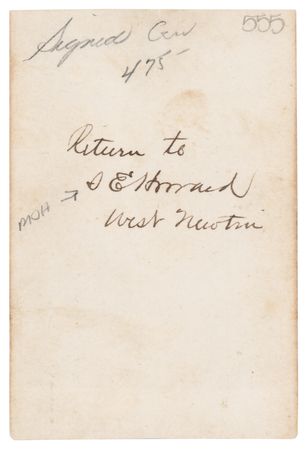 555
Signed
475
Return to
S E Howard
West Newton